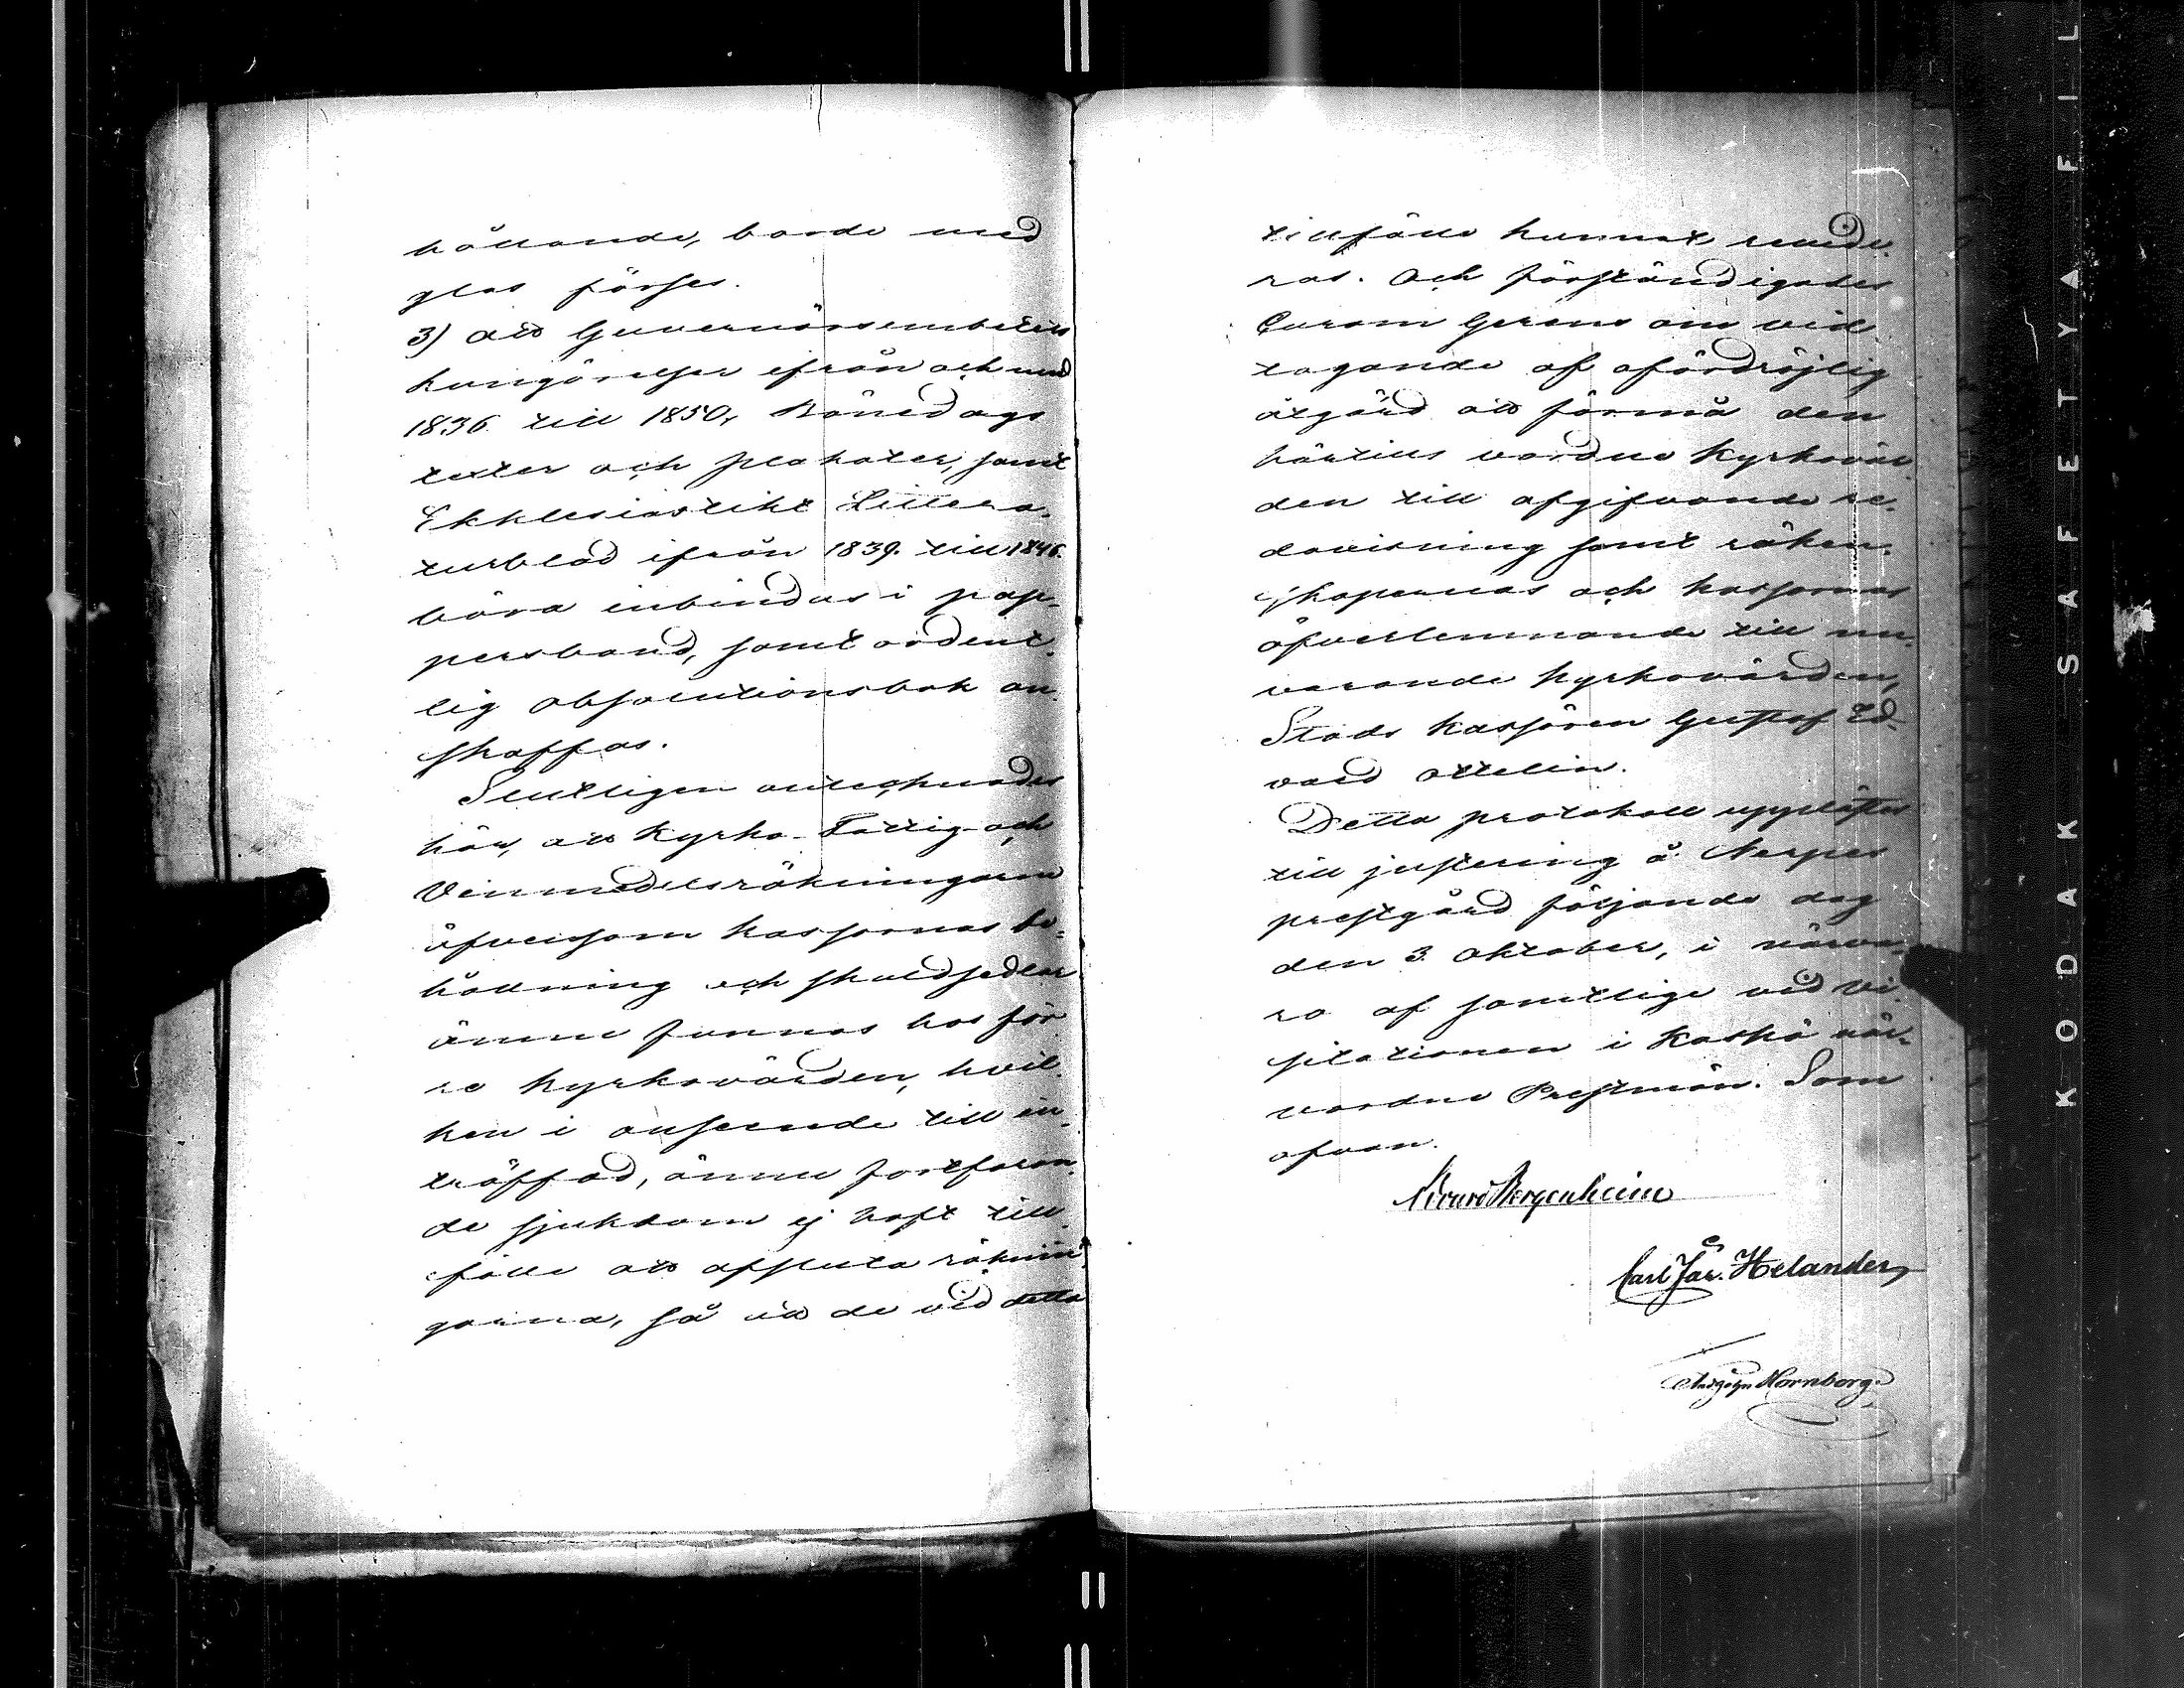 hållande, borde med
glas förses.
3) att Guvernörsembetets
kungörelser ifrån och med
1836 till 1850, Bönedags
texter och plakater, samt
Ekklesiastikt Littera-
turblad ifrån 1839 till 1846.
böra inbindas i pap-
persband, samt ordent-
lig absolutionsbok an-
skaffas.
Slutligen antecknades
här, att Kyrko- Fattig- och
Vinmedelsräkningarna
äfvensom kassornas be-
hållning och skuldsedlar
ännu funnos hos för-
re Kyrkovärden, hvil-
ken i anseende till in-
träffad, ännu fortfaran-
de sjukdom ej haft till-
fälle att afsluta räknin-
garna, så att de vid detta
tillfälle kunnat revide-
ras. Och förständigades
Curam Gerens om vid-
tagande af ofördröjlig
åtgärd att förmå den
härtills vardne Kyrkovär-
den till afgifvande re-
dovisning samt räken-
skapernas och kassornas
öfverlemnande till nu-
varande Kyrkovärden,
Stads Kassören Gustaf Ed-
vard Ottelin.
Detta protokoll upplästes
till justering å Nerpes
prestgård följande dag
den 3 Oktober, i närva-
ro af samtlige vid Vi-
sitationen i Kaskö när-
vardne Prestmän. Som
ofvan.
Edvard Bergenheim
Carl Jac. Helander
And. John Hornborg.
KODAK SAFETY A FIL